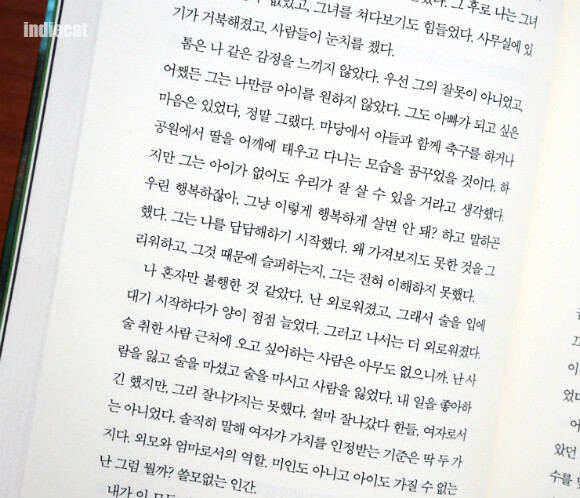 indiecat
없었고, 그녀를 쳐다보기도 힘들었다. 그 후로 나는 그녀
기가 거북해졌고, 사람들이 눈치를 챘다. 사무실에 있
톰은 나 같은 감정을 느끼지 않았다. 우선 그의 잘못이 아니었고,
어쨌든 그는 나만큼 아이를 원하지 않았다. 그도 아빠가 되고 싶은
마음은 있었다, 정말 그랬다. 마당에서 아들과 함께 축구를 하거나
공원에서 딸을 어깨에 태우고 다니는 모습을 꿈꾸었을 것이다. 하
지만 그는 아이가 없어도 우리가 잘 살 수 있을 거라고 생각했다.
우린 행복하잖아, 그냥 이렇게 행복하게 살면 안 돼? 하고 말하곤
했다. 그는 나를 답답해하기 시작했다. 왜 가져보지도 못한 것을 그
리워하고, 그것 때문에 슬퍼하는지, 그는 전혀 이해하지 못했다.
나 혼자만 불행한 것 같았다. 난 외로워졌고, 그래서 술을 입에
대기 시작하다가 양이 점점 늘었다. 그러고 나서는 더 외로워졌다.
술 취한 사람 근처에 오고 싶어하는 사람은 아무도 없으니까. 난 사
람을 잃고 술을 마셨고 술을 마시고 사람을 잃었다. 내 일을 좋아하
긴 했지만, 그리 잘나가지는 못했다. 설마 잘나갔다 한들, 여자로서
는 아니었다. 솔직히 말해 여자가 가치를 인정받는 기준은 딱 두 가
지다. 외모와 엄마로서의 역할. 미인도 아니고 아이도 가질 수 없는
난 그럼 뭘까? 쓸모없는 인간.
내가 이 모든
어
았던
수를